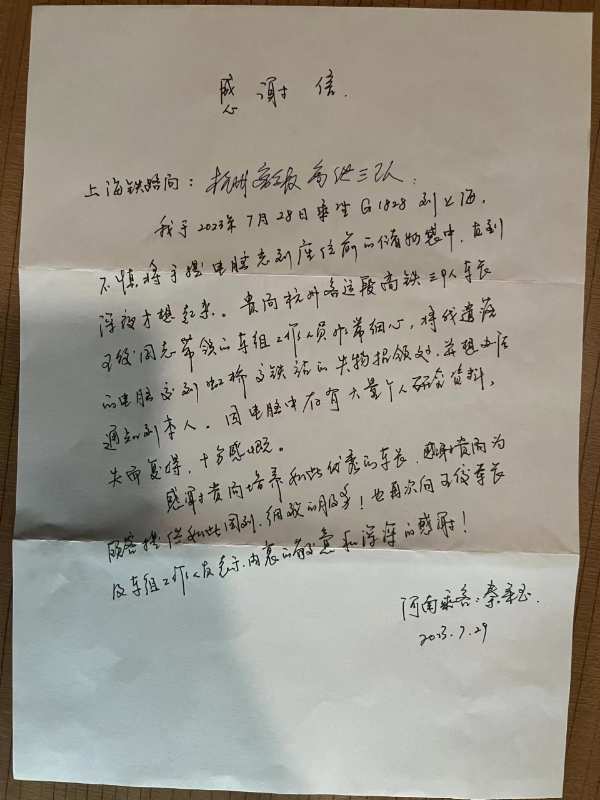 感谢信.
上海铁路局：杭州客运段高铁三队.
我于2023年7月28日乘坐G1828到上海.
不慎将手提电脑忘到座位前的储物袋中，直到
深夜才想起来。贵局杭州客运段高铁三队车长
王姣同志带领的车组工作人员非常细心，将我遗落
的电脑交到虹桥高铁站的失物招领处，并想办法
通知到本人。因电脑中存有大量个人研究资料，
失而复得，十分感慨。
感谢贵局培养如此优秀的车长，感谢贵局为
顾客提供如此周到、细致的服务！也再次向王姣车长
及车组工作人员表示内衷的敬意和深深的感谢！
河南乘客：秦
2023.7.29